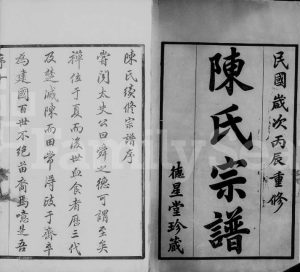 民國歲次丙辰重修
陳氏宗譜
德星堂珍藏
陳氏續修宗譜序
嘗閱太史公曰舜之德可謂至矣
禪位于夏而後世血食者歷三代
及楚滅陳而田常得政于齊卒
為建國百世不絕苗裔焉噫是吾
序